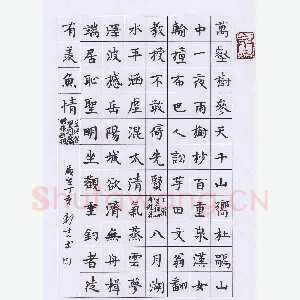 萬壑樹參天千山響杜鵑山
中一夜雨樹杪百重泉漢女
輸橦布巴人訟芋田文翁翻
教授不敢倚先賢
八月湖
水平涵虛混太清氣蒸雲夢
澤波撼岳陽城欲濟無舟楫
端居恥聖明坐觀垂釣者徒
有羨魚情